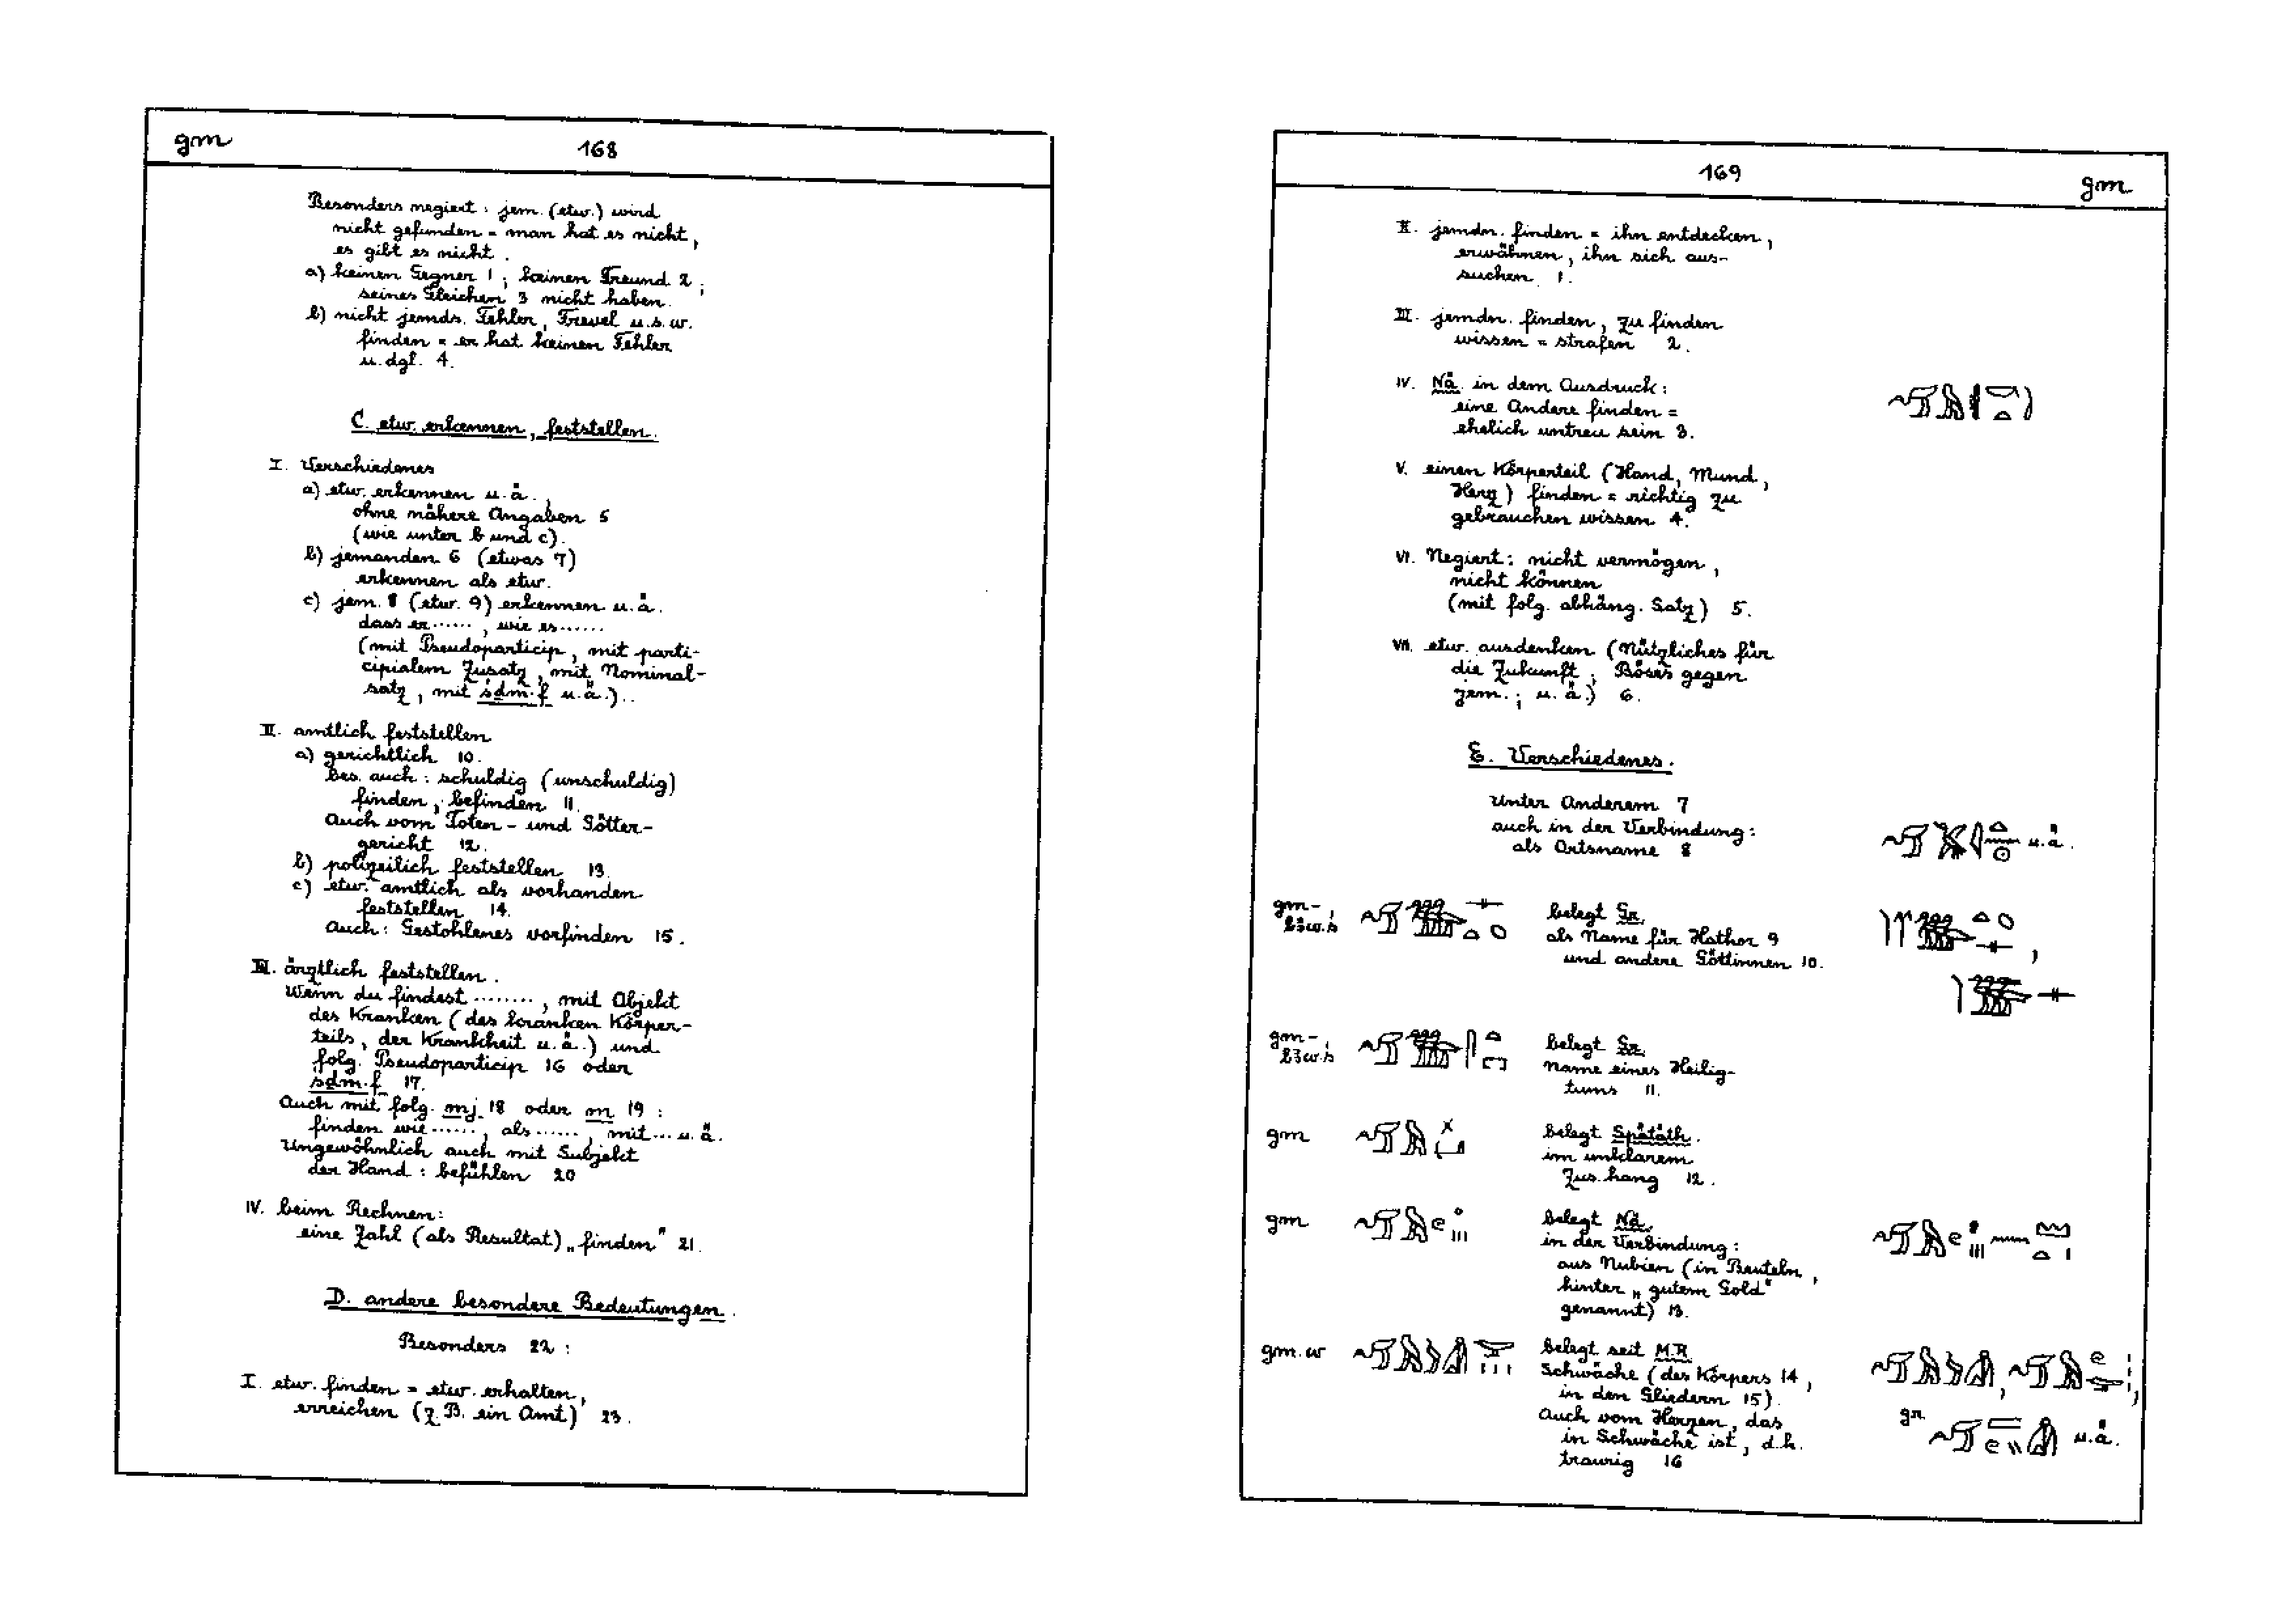 gm 168
Besonders negiert: jem. (etw.) wird
nicht gefunden = man hat es nicht,
es gibt es nicht.
a) keinen Gegner 1; keinen Freund 2;
seines Gleichen 3 nicht haben.
b) nicht jemds. Fehler, Frevel u.s.w.
finden = er hat keinen Fehler
u. dgl. 4.
C. etw. erkennen, feststellen.
I. Verschiedenes
a) etw. erkennen u. ä.,
ohne nähere Angaben 5
(wie unter b und c).
b) jemanden 6 (etwas 7)
erkennen als etw.
c) jem. 8 (etw. 9) erkennen u. ä.
dass er ......, wie es ......
(mit Pseudoparticip, mit parti-
cipialem Zusatz, mit Nominal-
satz, mit śḏm.f u. ä.)..
II. amtlich feststellen
a) gerichtlich 10.
bes. auch: schuldig (unschuldig)
finden, befinden 11.
Auch vom Toten- und Götter-
gericht 12.
b) polizeilich feststellen 13.
c) etw. amtlich als vorhanden
feststellen 14.
Auch: Gestohlenes vorfinden 15.
III. ärztlich feststellen.
Wenn du findest ........, mit Objekt
des Kranken (des kranken Körper-
teils, der Krankheit u. ä.) und
folg. Pseudoparticip 16 oder
śḏm.f 17.
Auch mit folg. mj 18 oder m 19:
finden wie ......, als ......, mit ... u. ä.
Ungewöhnlich auch mit Subjekt
der Hand: befühlen 20
IV. beim Rechnen:
eine Zahl (als Resultat) „finden" 21.
D. andere besondere Bedeutungen.
Besonders 22:
I. etw. finden = etw. erhalten,
erreichen (z. B. ein Amt) 23.
169 gm
II. jemdn. finden = ihn entdecken,
erwähnen, ihn sich aus-
suchen 1.
III. jemdn. finden, zu finden
wissen = strafen 2.
IV. Nä. in dem Ausdruck:
eine Andere finden =
ehelich untreu sein 3.
V. einen Körperteil (Hand, Mund,
Herz) finden = richtig zu
gebrauchen wissen 4.
VI. Negiert: nicht vermögen,
nicht können
(mit folg. abhäng. Satz) 5.
VII. etw. ausdenken (Nützliches für
die Zukunft; Böses gegen
jem.; u. ä.) 6.
E. Verschiedenes.
Unter Anderem 7
auch in der Verbindung:
als Ortsname 8 u. ä.
gm- belegt Gr.
bꜣw.ś als Name für Hathor 9
und andere Göttinnen 10.
gm- belegt Gr.
bꜣw.ś Name eines Heilig-
tums 11.
gm belegt Spätäth.
im unklarem
Zus.hang 12.
gm belegt Nä.
in der Verbindung:
aus Nubien (in Beuteln,
hinter „gutem Gold"
genannt) 13.
gm.w belegt seit M.R.
Schwäche (des Körpers 14,
in den Gliedern 15).
Auch vom Herzen, das gr. u. ä.
in Schwäche ist, d. h.
traurig 16